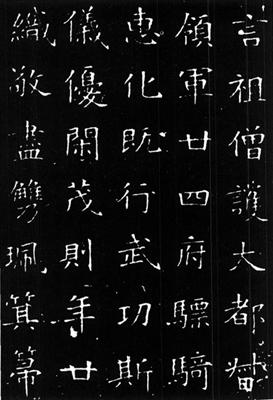 言祖僧護大都督
領軍廿四府驃騎
惠化既行武功斯
儀優閑茂則年廿
織敬盡珮箕箒